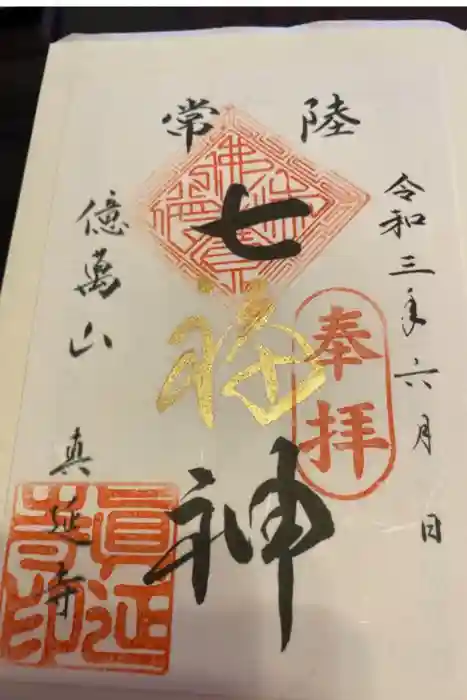 令和三年六月 日
奉拝
常陸
七福神
億萬山 真延寺
眞延
寺印